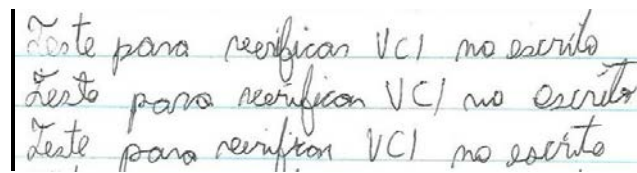 Teste para verificar VCI no escrito
Teste para verificar VCI no escrito
Teste para verificar VCI no escrito